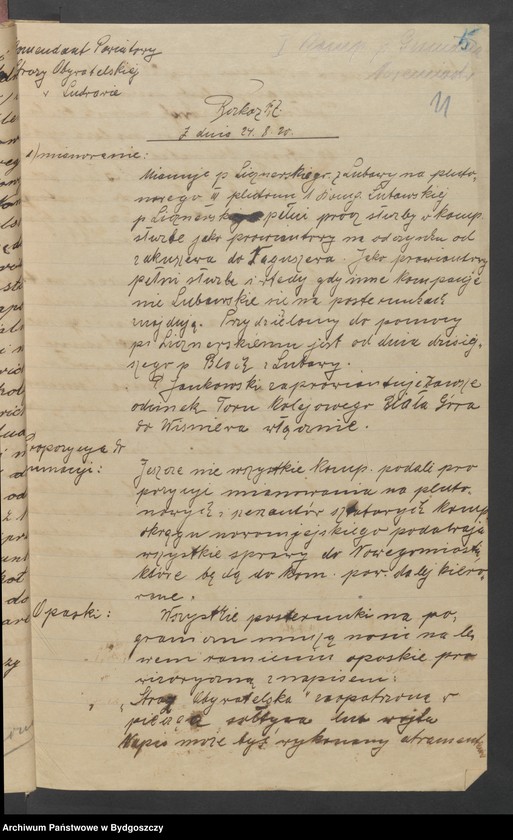 Komendant Powiatowy
Straży Obywatelskiej
w Lubawie
5
11
Rozkaz 12
z dnia 24.8.20.
1/mianowanie:
Mianuje p Liznerskiego z Lubawy na pluto-
nowego II plutonu 1 Komp Lubawskiej
p Liznerski pełni prócz służby w komp.
służbe jako prowiantowy na odcinku od
Zakużewa do Raguszewa. Jako prowiantowy
pełni służbe i wtedy gdy inne kompanje
nie Lubawskie sie na posterunkach
znajdują. Przydzielony do pomocy
p. Liznerskiemu jest od dnia dzisiej-
szego p. Block z Lubawy.
P. Jankowski zaprowiantuje zawsze
odcinek Toru kolejowego Biała Góra
do Wiśniewa włącznie.
Propozycja do
nominacji:
Jeszcze nie wszystkie Komp. podali pro
pozycji mianowania na pluto-
nowych, i sierżantów Komp.
okręgu nowomiejskiego podawają
wszystkie sprawy do Nowegomiasta
które będą do Kom. pow. dalej kiero-
wane.
Opaski:
Wszystkie posterunki na po-
graniczu muszą nosić na le
wem ramieniu opaskie pro
wizoryczną z napisem:
„Straż Obywatelska" zaopatrzone w
pieczęć sołtysa lub wójta
Napis może być wykonany atramentem
Archiwum Państwowe w Bydgoszczy